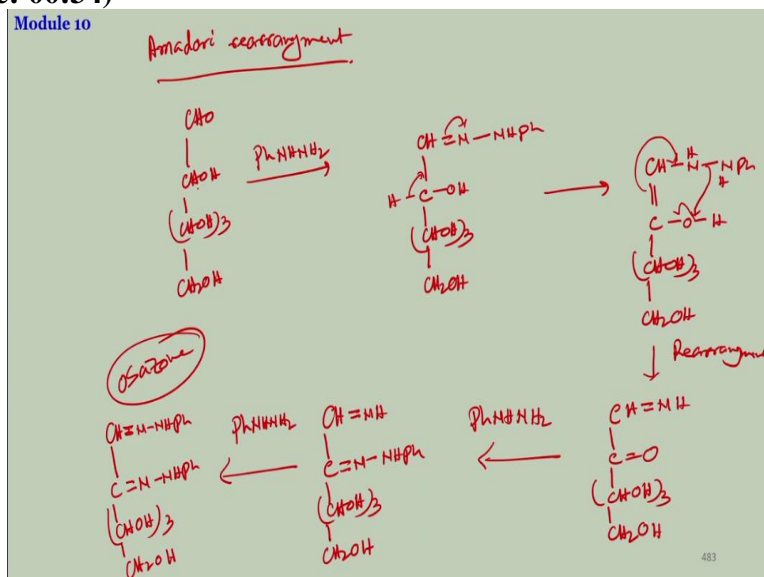 e: 00:34)
Module 10
Amadori rearrangment
CHO
CHOH
(CHOH)3
CH2OH
PhNHNH2
CH=N-NHPh
H-C-OH
(CHOH)3
CH2OH
CH-N-NPh
H
H
C-O-H
(CHOH)3
CH2OH
Rearrangment
CH=NH
C=O
(CHOH)3
CH2OH
PhNHNH2
CH=NH
C=N-NHPh
(CHOH)3
CH2OH
PhNHNH2
osazone
CH=N-NHPh
C=N-NHPh
(CHOH)3
CH2OH
483